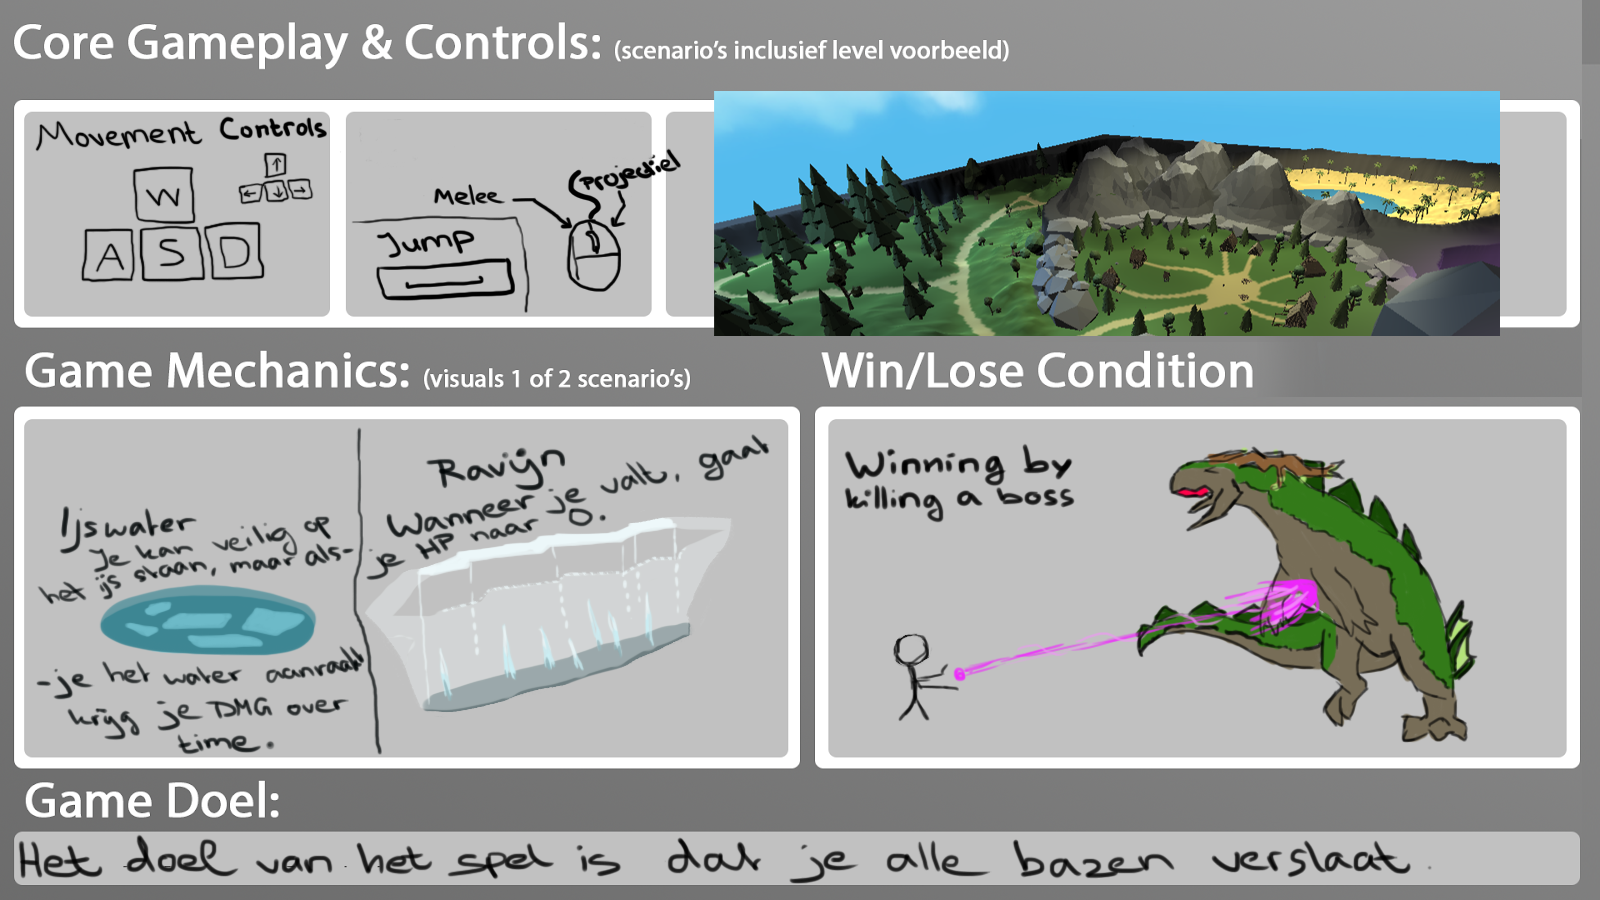 Core Gameplay & Controls: (scenario's inclusief level voorbeeld)
Movement Controls
W
A S D
Melee
Projectiel
Jump
Game Mechanics: (visuals 1 of 2 scenario's)
Ijswater
Je kan veilig op
het ijs staan, maar als-
-je het water aanraakt
krijg je DMG over
time.
Ravijn
Wanneer je valt, gaat
je HP naar 0.
Win/Lose Condition
Winning by
killing a boss
Game Doel:
Het doel van het spel is dat je alle bazen verslaat.